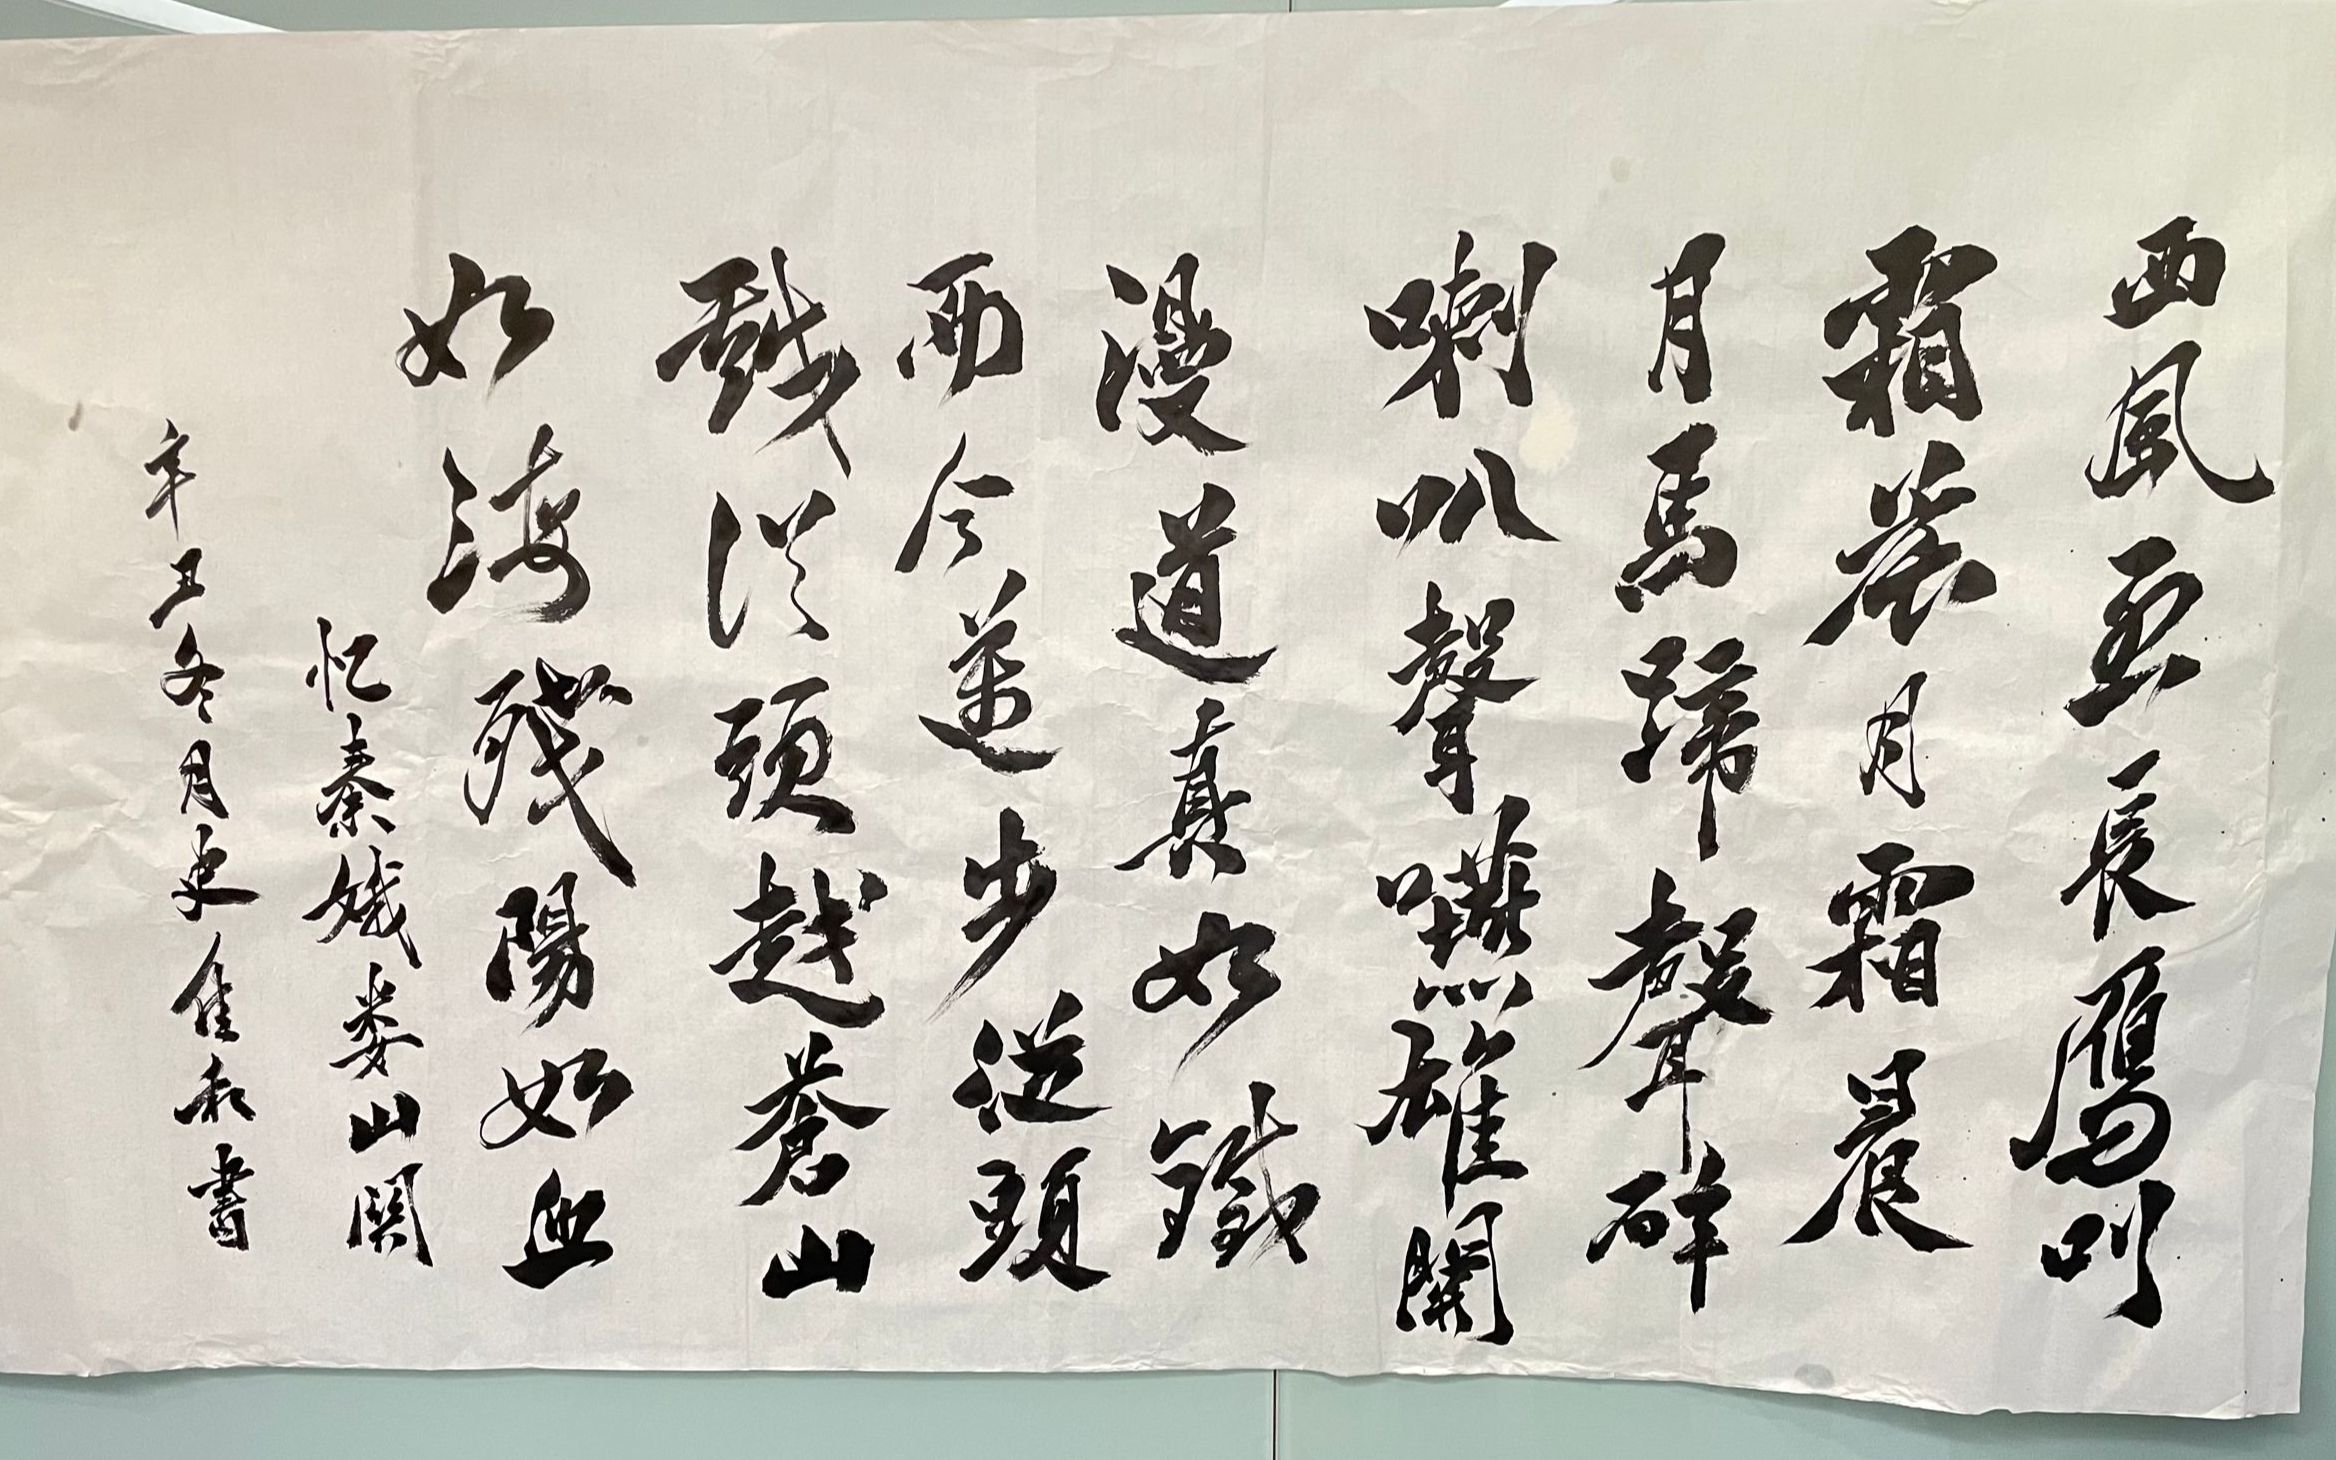 西風長鴈叫
霜晨月霜晨
月馬蹄聲碎
喇叭聲嚥雄關
漫道真如鐵
而今邁步從頭
越從頭越蒼山
如海殘陽如血
忆秦娥娄山関
辛丑冬月史佳書